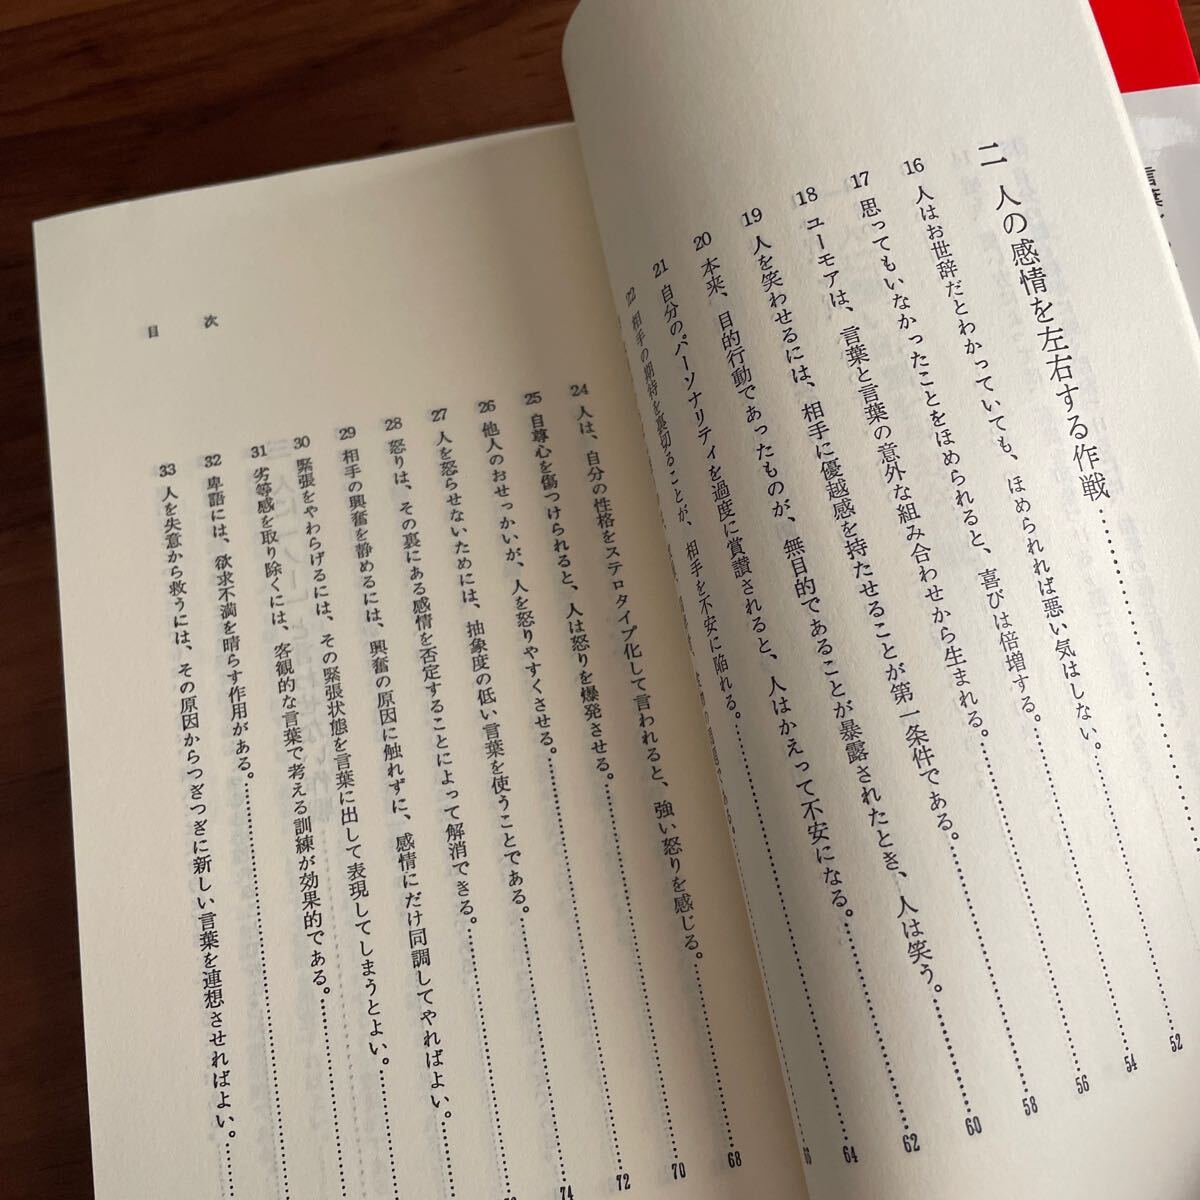 二 人の感情を左右する作戦
16 人はお世辞だとわかっていても、ほめられれば悪い気はしない。 52
17 思ってもいなかったことをほめられると、喜びは倍増する。 54
18 ユーモアは、言葉と言葉の意外な組み合わせから生まれる。 56
19 人を笑わせるには、相手に優越感を持たせることが第一条件である。 58
20 本来、目的行動であったものが、無目的であることが暴露されたとき、人は笑う。 60
21 自分のパーソナリティを過度に賞讃されると、人はかえって不安になる。 62
22 相手の期待を裏切ることが、相手を不安に陥れる。 64
66
24 人は、自分の性格をステロタイプ化して言われると、強い怒りを感じる。 68
25 自尊心を傷つけられると、人は怒りを爆発させる。 70
26 他人のおせっかいが、人を怒りやすくさせる。 72
27 人を怒らせないためには、抽象度の低い言葉を使うことである。 74
28 怒りは、その裏にある感情を否定することによって解消できる。
29 相手の興奮を静めるには、興奮の原因に触れずに、感情にだけ同調してやればよい。
30 緊張をやわらげるには、その緊張状態を言葉に出して表現してしまうとよい。
31 劣等感を取り除くには、客観的な言葉で考える訓練が効果的である。
32 卑語には、欲求不満を晴らす作用がある。
33 人を失意から救うには、その原因からつぎつぎに新しい言葉を連想させればよい。
目次